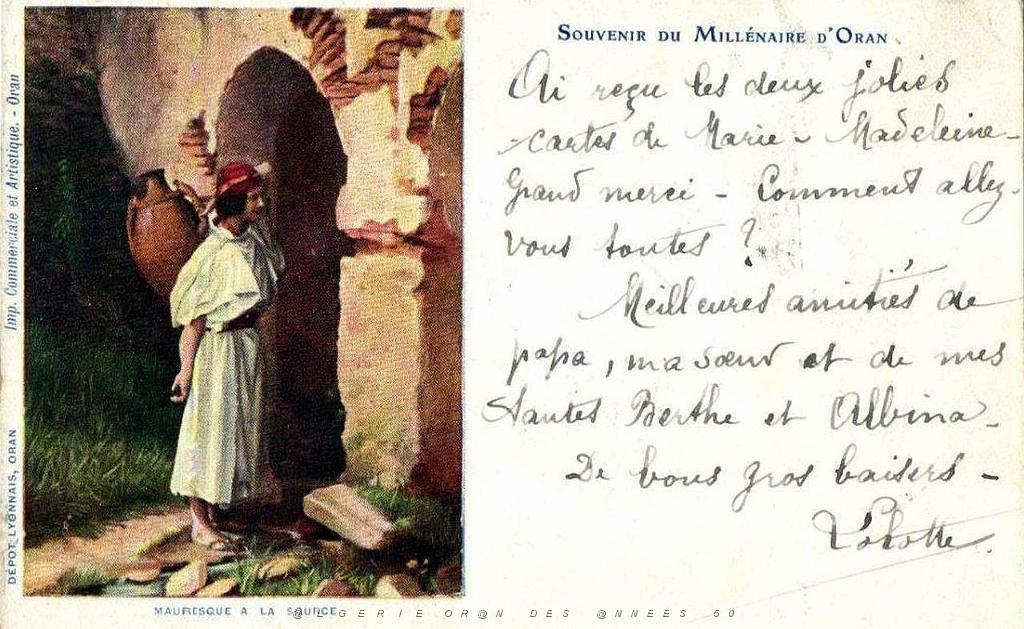 Imp. Commerciale et Artistique. - Oran
DÉPOT LYONNAIS, ORAN
MAURESQUE A LA SOURCE
SOUVENIR DU MILLÉNAIRE D'ORAN
Ai reçu les deux jolies
cartes de Marie-Madeleine-
Grand merci - Comment allez-
vous toutes ?
Meilleures amitiés de
papa, ma sœur et de mes
tantes Berthe et Albina.
De bons gros baisers -
Lolotte.
@LGERIE OR@N DES @NNEES 50